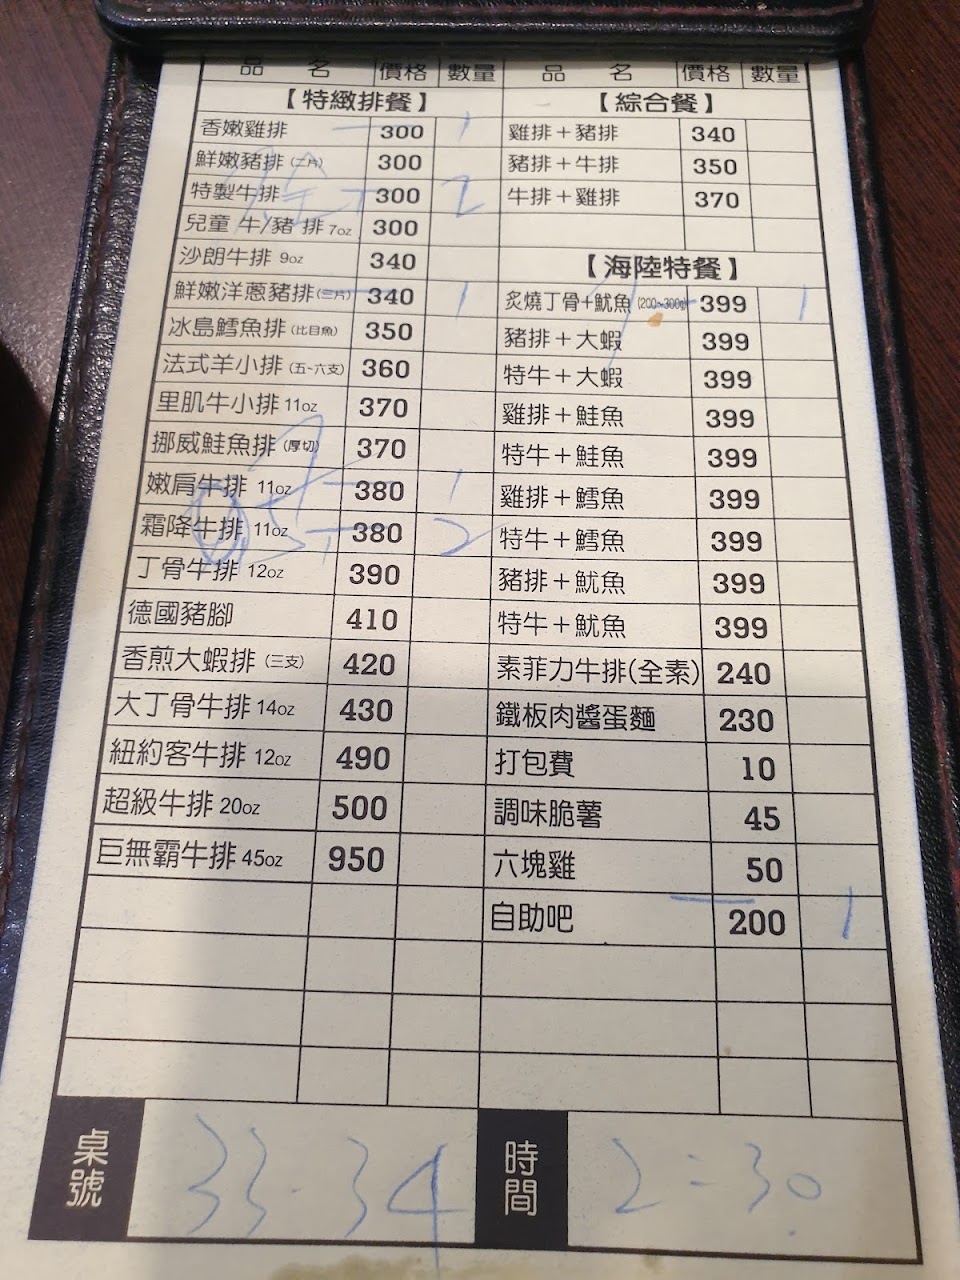 品 名 價格 數量
【特緻排餐】
香嫩雞排 300 1
鮮嫩豬排 (二片) 300
特製牛排 300 2
兒童 牛/豬 排 7oz 300
沙朗牛排 9oz 340
鮮嫩洋蔥豬排 (三片) 340 1
冰島鱈魚排 (比目魚) 350
法式羊小排 (五~六支) 360
里肌牛小排 11oz 370
挪威鮭魚排 (厚切) 370
嫩肩牛排 11oz 380 1
霜降牛排 11oz 380 2
丁骨牛排 12oz 390
德國豬腳 410
香煎大蝦排 (三支) 420
大丁骨牛排 14oz 430
紐約客牛排 12oz 490
超級牛排 20oz 500
巨無霸牛排 45oz 950
品 名 價格 數量
【綜合餐】
雞排+豬排 340
豬排+牛排 350
牛排+雞排 370
【海陸特餐】
炙燒丁骨+魷魚 (200~300g) 399 1
豬排+大蝦 399
特牛+大蝦 399
雞排+鮭魚 399
特牛+鮭魚 399
雞排+鱈魚 399
特牛+鱈魚 399
豬排+魷魚 399
特牛+魷魚 399
素菲力牛排(全素) 240
鐵板肉醬蛋麵 230
打包費 10
調味脆薯 45
六塊雞 50
自助吧 200 1
桌號 33-34
時間 2:30